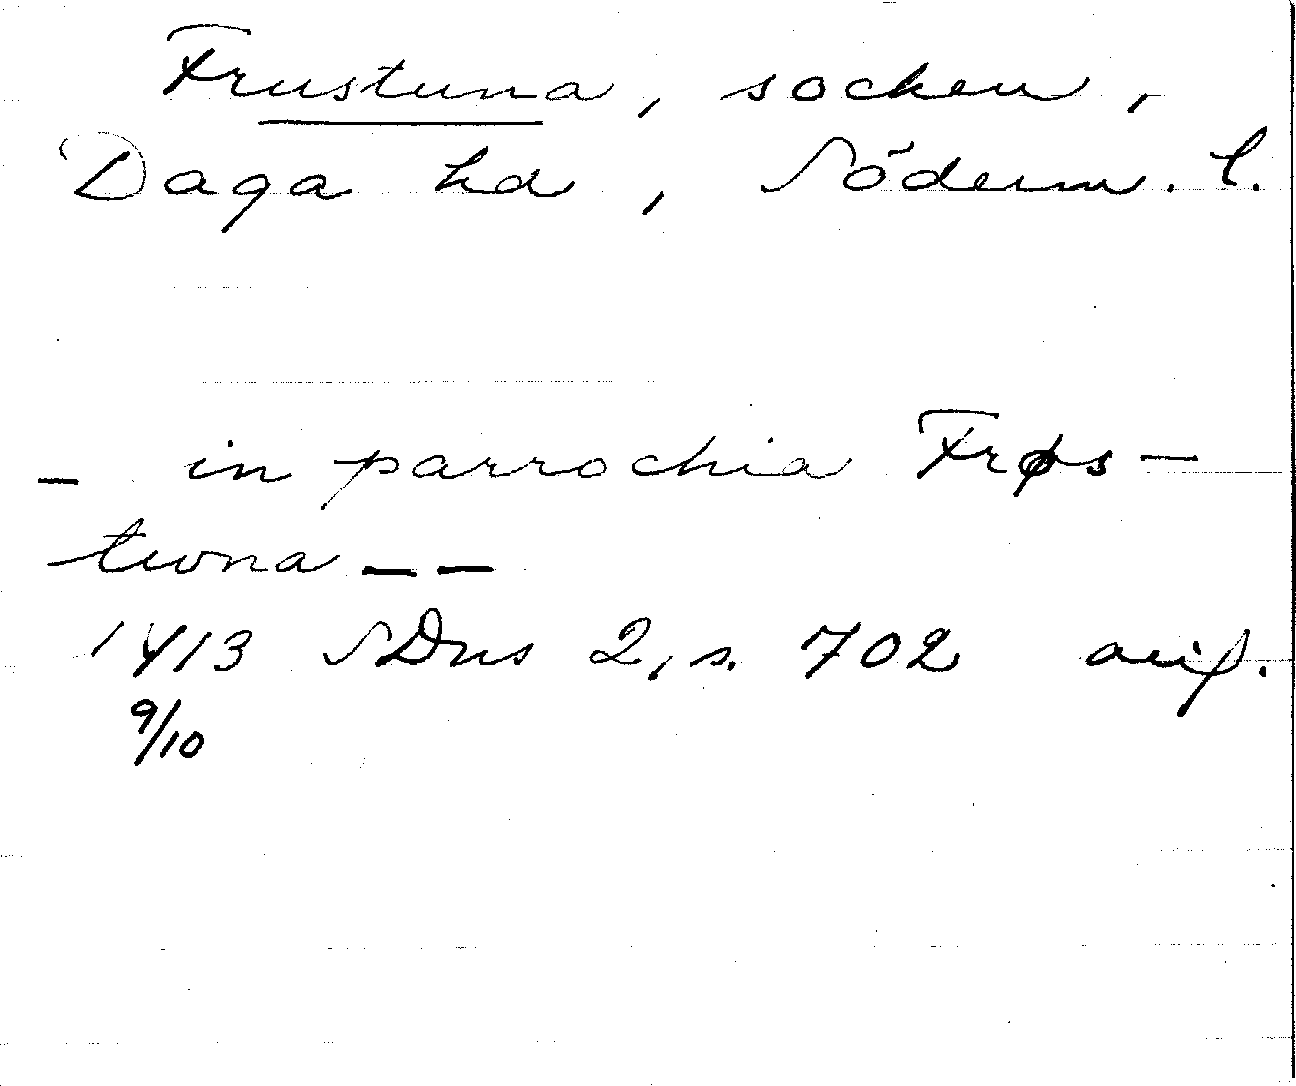 Frustuna, socken,
Daga hd, Söderm. l.
- in parrochia Frøs-
twna - -
1413 SDns 2, s. 702 avs.
9/10